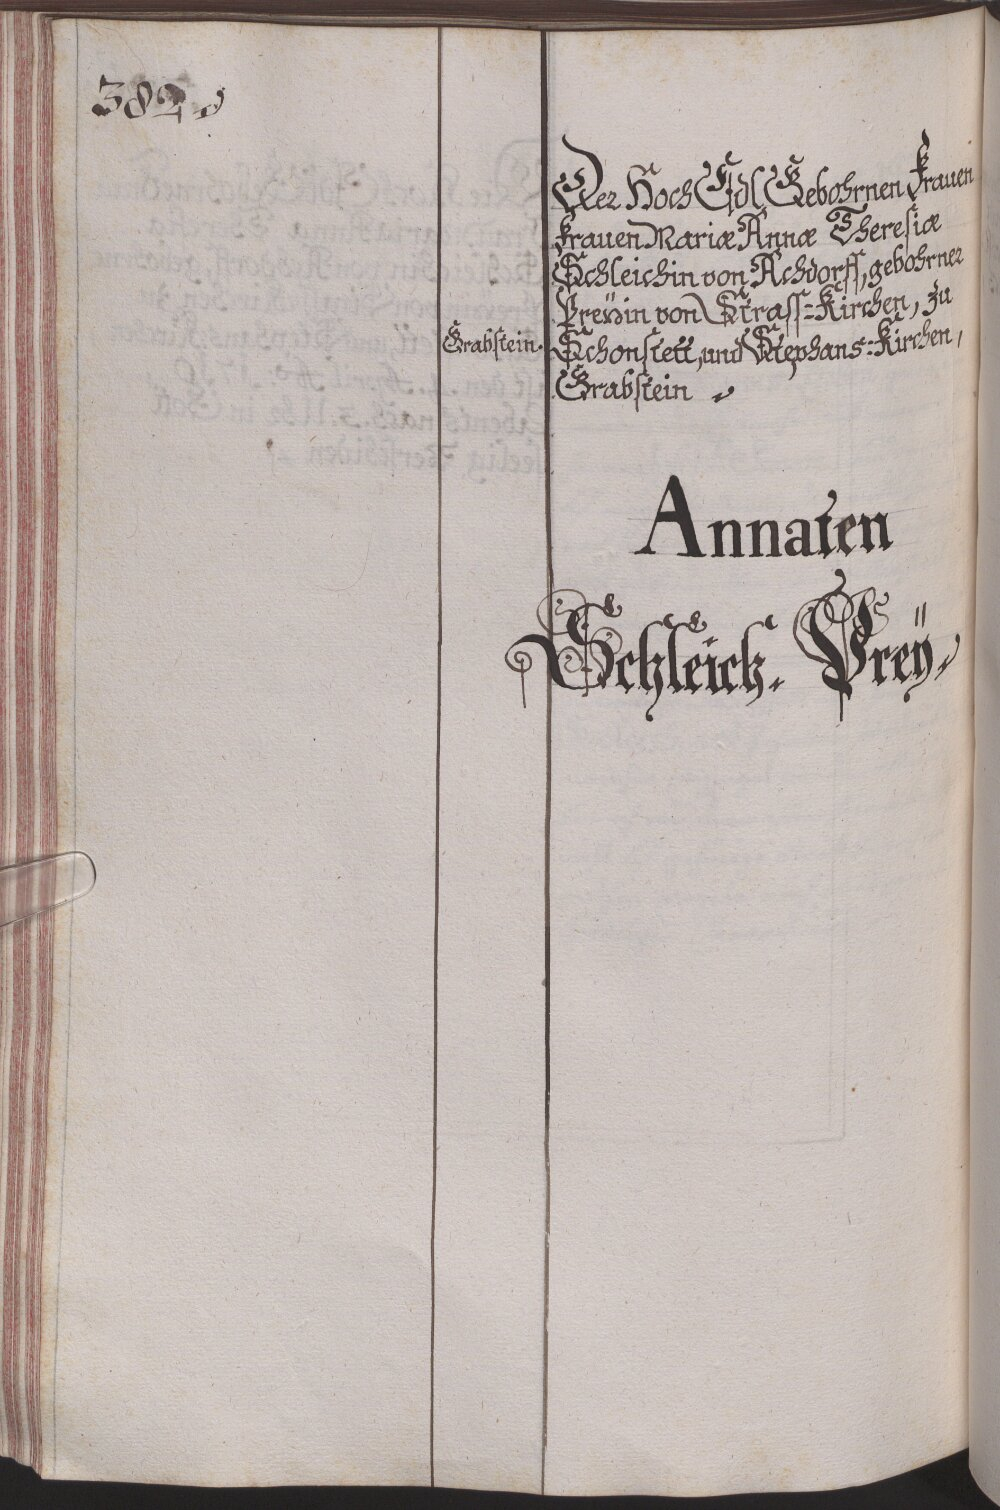 382.
Der Hoch Edl Gebohrnen Frauen
Frauen Mariæ Annæ Theresiæ
Schleichin von Achdorff, gebohrner
Preÿin von Strass-Kirchen, zu
Grabstein. Schonstett, und Stephans-Kirchen,
Grabstein
Annaten
Schleich. Preÿ.